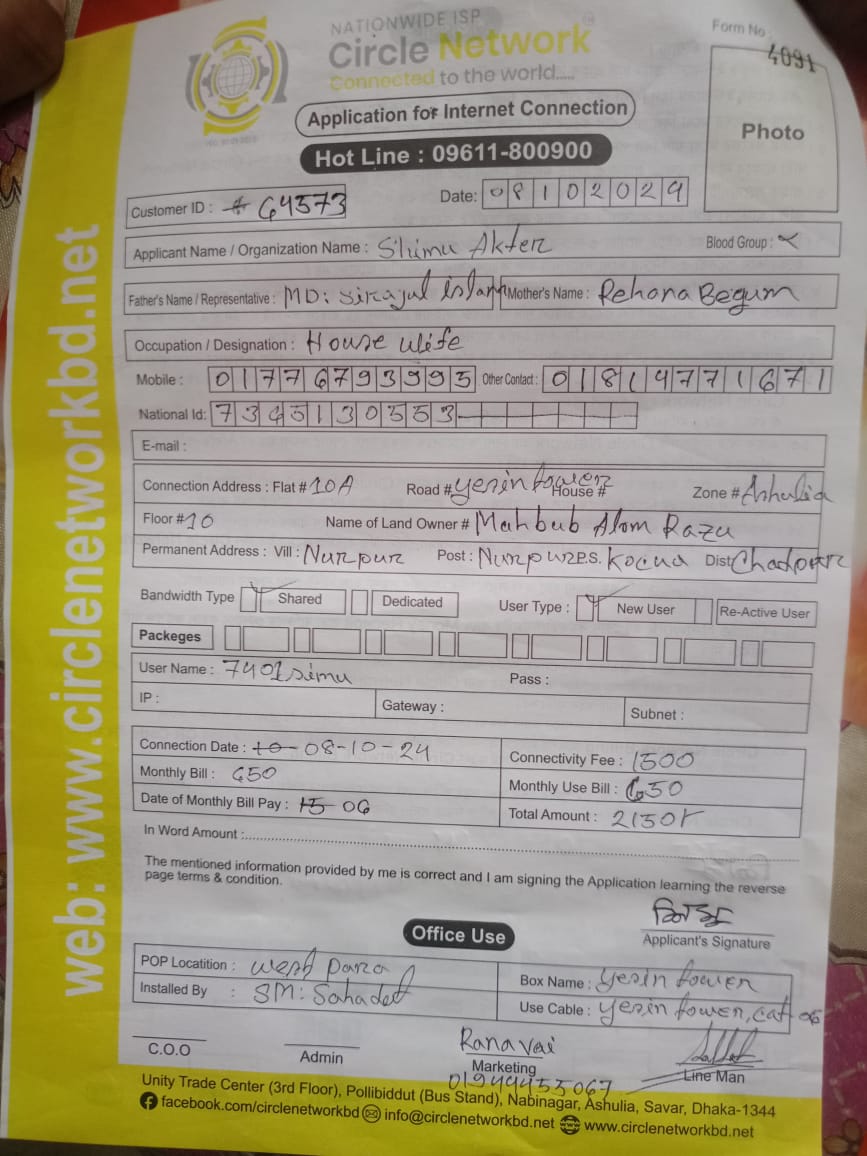 NATIONWIDE ISP
Circle Network®
Connected to the world.....
Form No :
4091
Application for Internet Connection
Photo
Hot Line : 09611-800900
Customer ID : # 64573 Date: 08102024
Applicant Name / Organization Name : Shimu Akter Blood Group :
Father's Name / Representative : MD: Sirajul islam Mother's Name : Rehona Begum
Occupation / Designation : House wife
Mobile : 01776793995 Other Contact : 01814771671
National Id: 7345130553
E-mail :
Connection Address : Flat # 10A Road # yesin tower House # Zone # Ashulia
Floor # 10 Name of Land Owner # Mahbub Alom Razu
Permanent Address : Vill : Nurpur Post : Nurpur P.S. Kocua Dist Chadpur
Bandwidth Type Shared Dedicated User Type : New User Re-Active User
Packeges
User Name : 7401simu Pass :
IP : Gateway : Subnet :
Connection Date : 10 08-10-24 Connectivity Fee : 1500
Monthly Bill : 650 Monthly Use Bill : 650
Date of Monthly Bill Pay : 15 06 Total Amount : 2150
In Word Amount :
The mentioned information provided by me is correct and I am signing the Application learning the reverse
page terms & condition.
Applicant's Signature
Office Use
POP Locatition : west para Box Name : yesin tower
Installed By : SM: Sahadet Use Cable : yesin tower, cat 06
C.O.O Admin Rana vai
Marketing Line Man
01949453067
Unity Trade Center (3rd Floor), Pollibiddut (Bus Stand), Nabinagar, Ashulia, Savar, Dhaka-1344
facebook.com/circlenetworkbd info@circlenetworkbd.net www.circlenetworkbd.net
web: www.circlenetworkbd.net